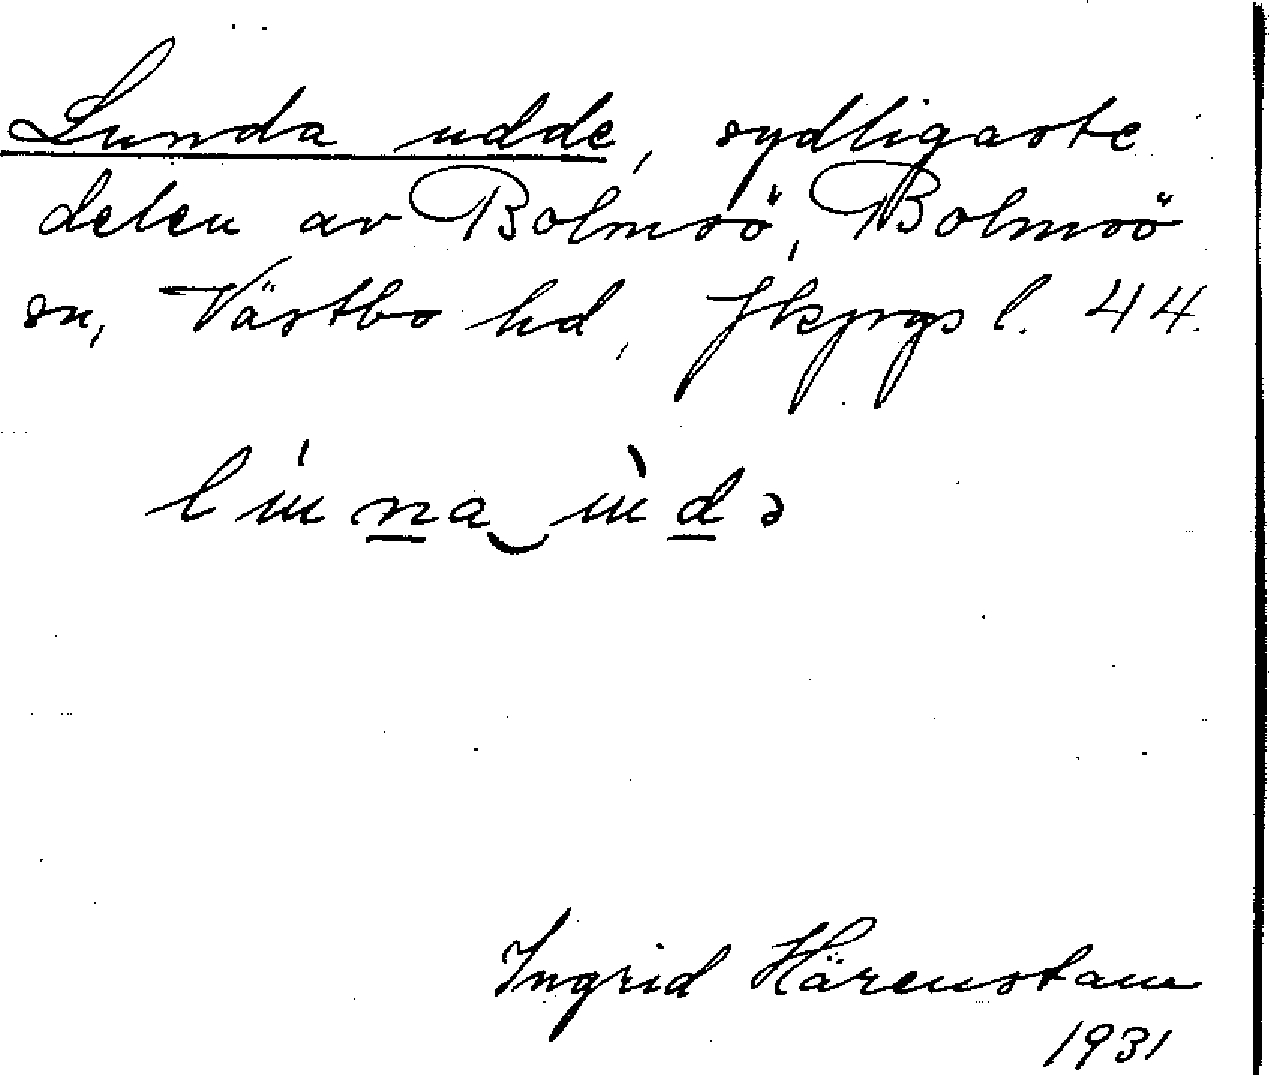 Lunda udde, sydligaste
delen av Bolmsö, Bolmsö
sn, Västbo hd, Jkpgs l. 44.
lúna‿ùdə
Ingrid Härenstam
1931